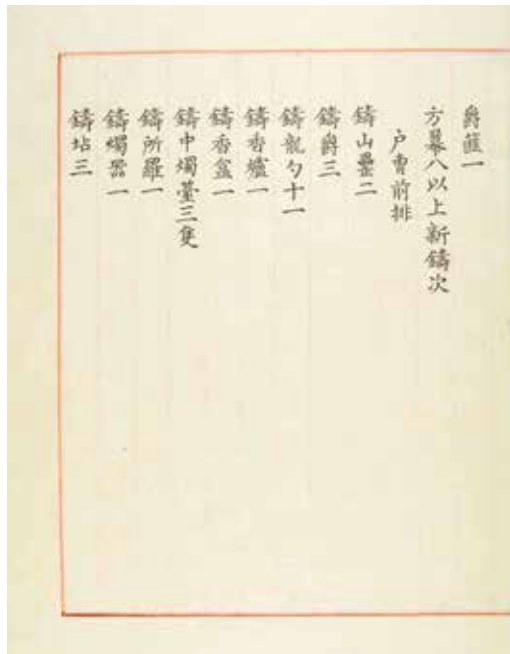 爵篚一
方冪八以上新鑄次
戶曹前排
鑄山罍二
鑄爵三
鑄龍勺十一
鑄香爐一
鑄香盒一
鑄中燭臺三隻
鑄所羅一
鑄燭器一
鑄坫三